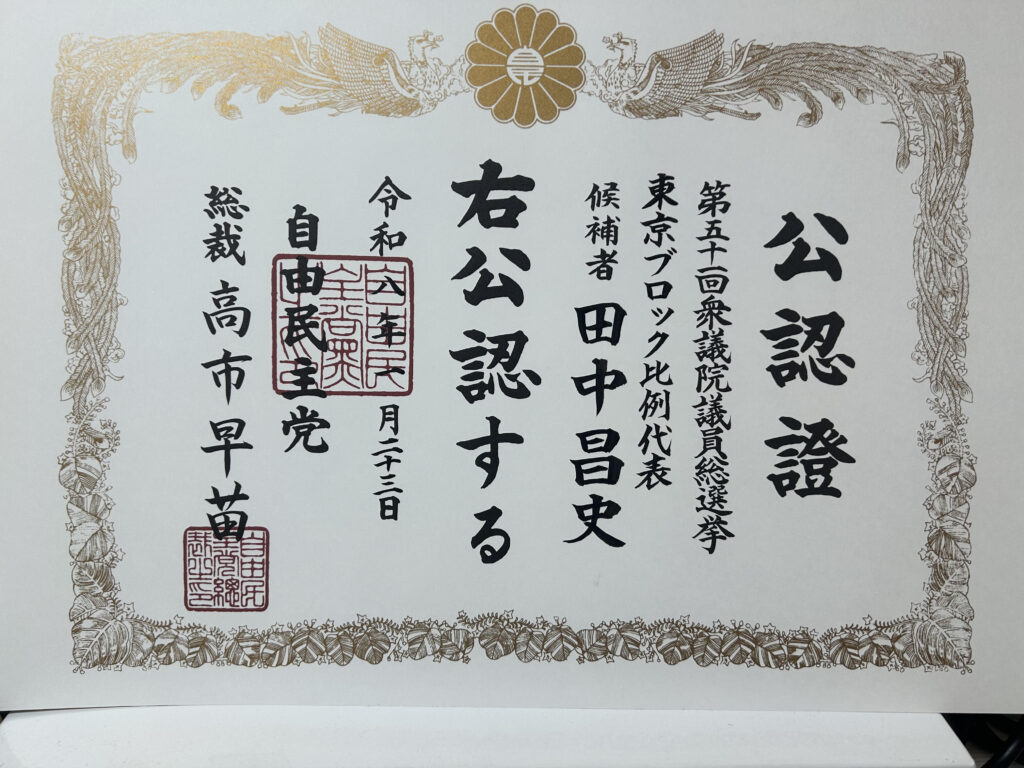 公認證
第五十一回衆議院議員総選挙
東京ブロック比例代表
候補者 田中昌史
右公認する
令和八年一月二十三日
自由民主党
総裁 高市早苗